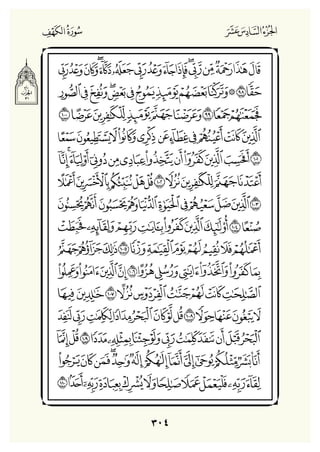 الجزء السادس عشر
سورة الكهف
قَالَ هَٰذَا رَحْمَةٌ مِّن رَّبِّي ۖ فَإِذَا جَاءَ وَعْدُ رَبِّي جَعَلَهُ دَكَّاءَ ۖ وَكَانَ وَعْدُ رَبِّي
حَقًّا ٩٨ ۞ وَتَرَكْنَا بَعْضَهُمْ يَوْمَئِذٍ يَمُوجُ فِي بَعْضٍ ۖ وَنُفِخَ فِي الصُّورِ
فَجَمَعْنَاهُمْ جَمْعًا ٩٩ وَعَرَضْنَا جَهَنَّمَ يَوْمَئِذٍ لِّلْكَافِرِينَ عَرْضًا ١٠٠
الَّذِينَ كَانَتْ أَعْيُنُهُمْ فِي غِطَاءٍ عَن ذِكْرِي وَكَانُوا لَا يَسْتَطِيعُونَ سَمْعًا
١٠١ أَفَحَسِبَ الَّذِينَ كَفَرُوا أَن يَتَّخِذُوا عِبَادِي مِن دُونِي أَوْلِيَاءَ ۚ إِنَّا
أَعْتَدْنَا جَهَنَّمَ لِلْكَافِرِينَ نُزُلًا ١٠٢ قُلْ هَلْ نُنَبِّئُكُم بِالْأَخْسَرِينَ أَعْمَالًا
١٠٣ الَّذِينَ ضَلَّ سَعْيُهُمْ فِي الْحَيَاةِ الدُّنْيَا وَهُمْ يَحْسَبُونَ أَنَّهُمْ يُحْسِنُونَ
صُنْعًا ١٠٤ أُولَٰئِكَ الَّذِينَ كَفَرُوا بِآيَاتِ رَبِّهِمْ وَلِقَائِهِ فَحَبِطَتْ
أَعْمَالُهُمْ فَلَا نُقِيمُ لَهُمْ يَوْمَ الْقِيَامَةِ وَزْنًا ١٠٥ ذَٰلِكَ جَزَاؤُهُمْ جَهَنَّمُ
بِمَا كَفَرُوا وَاتَّخَذُوا آيَاتِي وَرُسُلِي هُزُوًا ١٠٦ إِنَّ الَّذِينَ آمَنُوا وَعَمِلُوا
الصَّالِحَاتِ كَانَتْ لَهُمْ جَنَّاتُ الْفِرْدَوْسِ نُزُلًا ١٠٧ خَالِدِينَ فِيهَا
لَا يَبْغُونَ عَنْهَا حِوَلًا ١٠٨ قُل لَّوْ كَانَ الْبَحْرُ مِدَادًا لِّكَلِمَاتِ رَبِّي لَنَفِدَ
الْبَحْرُ قَبْلَ أَن تَنفَدَ كَلِمَاتُ رَبِّي وَلَوْ جِئْنَا بِمِثْلِهِ مَدَدًا ١٠٩ قُلْ إِنَّمَا
أَنَا بَشَرٌ مِّثْلُكُمْ يُوحَىٰ إِلَيَّ أَنَّمَا إِلَٰهُكُمْ إِلَٰهٌ وَاحِدٌ ۖ فَمَن كَانَ يَرْجُوا
لِقَاءَ رَبِّهِ فَلْيَعْمَلْ عَمَلًا صَالِحًا وَلَا يُشْرِكْ بِعِبَادَةِ رَبِّهِ أَحَدًا ١١٠
٣٠٤